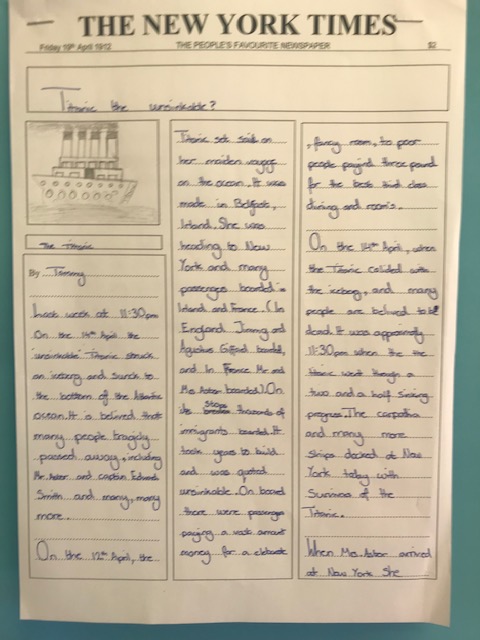 THE NEW YORK TIMES
Friday 19th April 1912
THE PEOPLE'S FAVOURITE NEWSPAPER
$2
Titanic the unsinkable?
The Titanic
By Tammy
Last week at 11:30pm
On the 14th April the
'unsinkable' Titanic struck
an iceberg and sunck to
the bottom of the Atlantic
ocean. It is belived that
many people tragicly
passed away, including
Mr. Astor and captain Edward
Smith and many, many
more.
On the 12th April, the
Titanic set sail on
her maiden voyage
on the ocean. It was
made in Belfast,
Irland. She was
heading to New
York and many
passengers boarded in
Irland and France. (In
England Jimmy and
boarded,
and in France Mr and
Ms Astor boarded). On
its stops thousands of
immigrants boarded. It
took years to build
and was quoted
unsinkable. On board
there were passengers
paying a vast amount
money for a elaborate
, fancy room, to poor
people paying three pound
for the best third class
dining and room's.
On the 14th April, when
the Titanic colided with
the iceberg, and many
people are belived to be
dead. It was
11:30pm when the the
titanic went through a
two and a half sinking
progress. The carpathia
and many more
ships docked at New
York today with
of the
Titanic.
When Ms. Astor arrived
at New York She